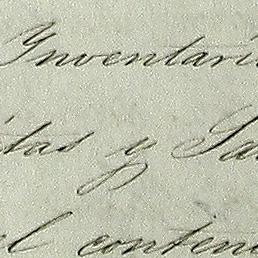 Inventari
itas y Sa
el conten